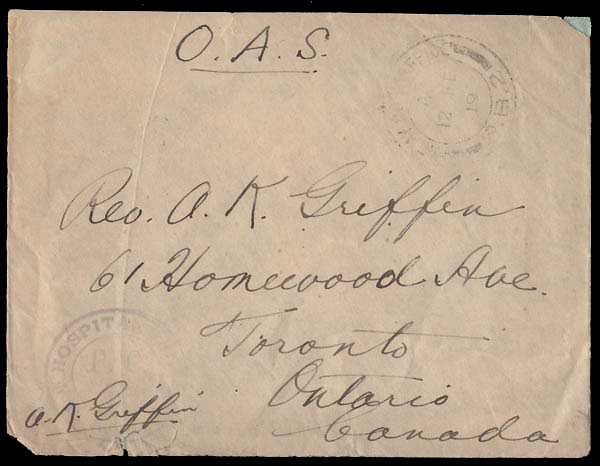 O. A. S.
A
12 FE
19
S.B.2
Rev. A. K. Griffin
61 Homewood Ave.
Toronto
Ontario
Canada
HOSPITA
A. K. Griffin